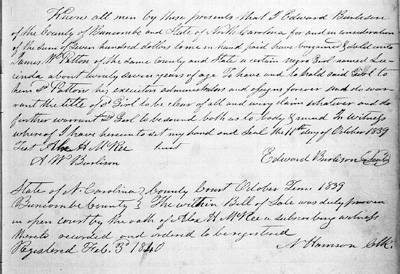 Know all men by these presents that I Edward Burlison
of the County of Buncombe and State of North Carolina for and in consideration
of the Sum of Seven hundred dollars to me in hand paid have bargained & sold unto
James W Patton of the same County and State a certain negro Girl named Lu-
cinda about twenty seven years of age To have and to hold said Girl to
him Sd Patton his executors administrators and assigns forever and do war-
rant the title of Sd Girl to be clear of all and every claim whatever and do
further warrant Sd Girl to be sound both as to body & mind In witness
whereof I have hereunto set my hand and Seal this 11th day of October 1839
Test Alex H McKee
A W Burlison Edward Burlison (Seal)
State of N Carolina & County Court October Term 1839
Buncombe County } The within Bill of Sale was duly proven
in open court by the oath of Alex H McKee a subscribing witness
thereto recorded and ordered to be registered
Registered Feb. 3d 1840 N Harrison Clk.